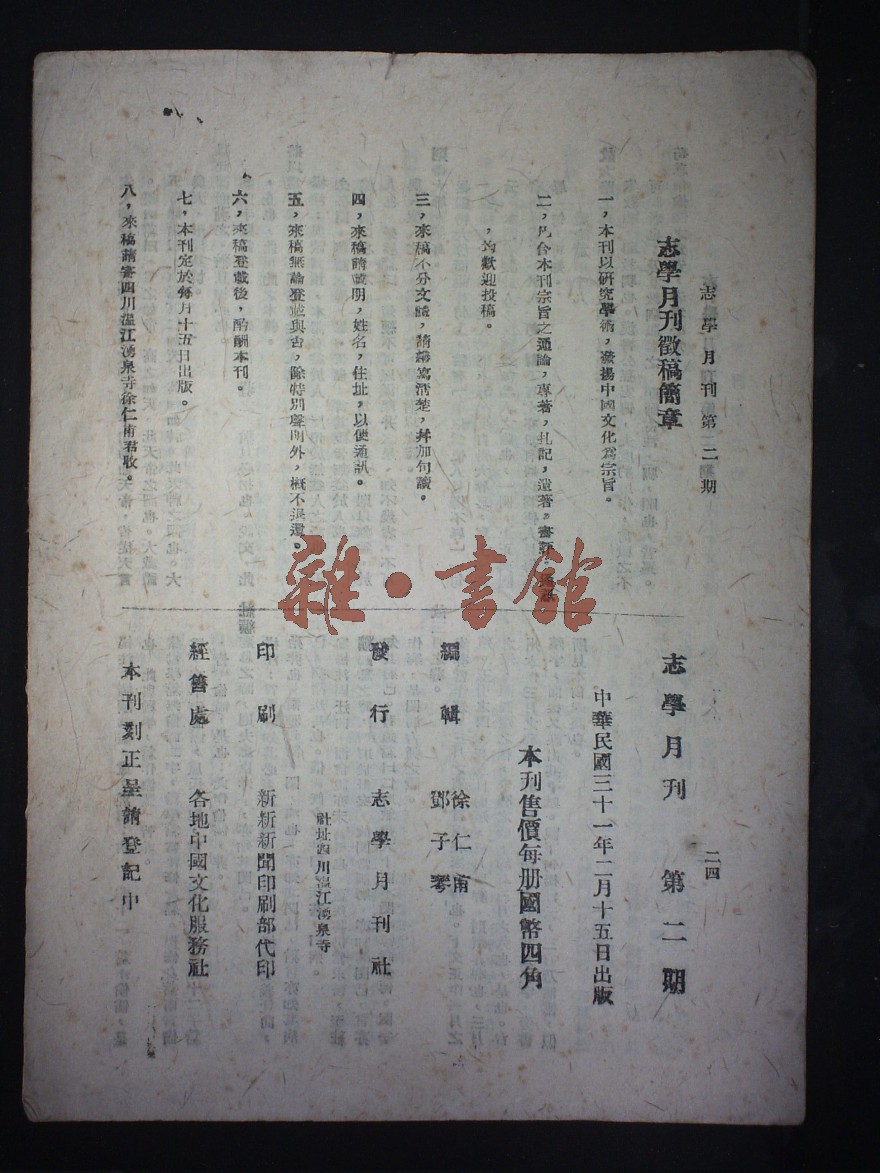 志學月刊第二期
二四
志學月刊徵稿簡章
一，本刊以研究學術，發揚中國文化爲宗旨。
二，凡合本刊宗旨之通論，專著，札記，遺著，書
，均歡迎投稿。
三，來稿不分文體，請繕寫清楚，幷加句讀。
四，來稿請註明，姓名，住址，以便通訊。
五，來稿無論登載與否，除特別聲明外，概不退還。
六，來稿登載後，酌酬本刊。
七，本刊定於每月十五日出版。
八，來稿請寄四川溫江湧泉寺徐仁甫君收。
志學月刊 第二期
中華民國三十一年二月十五日出版
本刊售價每册國幣四角
編輯 徐仁甫
鄧子琴
發行 志學月刊社
社址四川溫江湧泉寺
印刷 新新新聞印刷部代印
經售處 各地中國文化服務社
本刊刻正呈請登記中
雜·書館